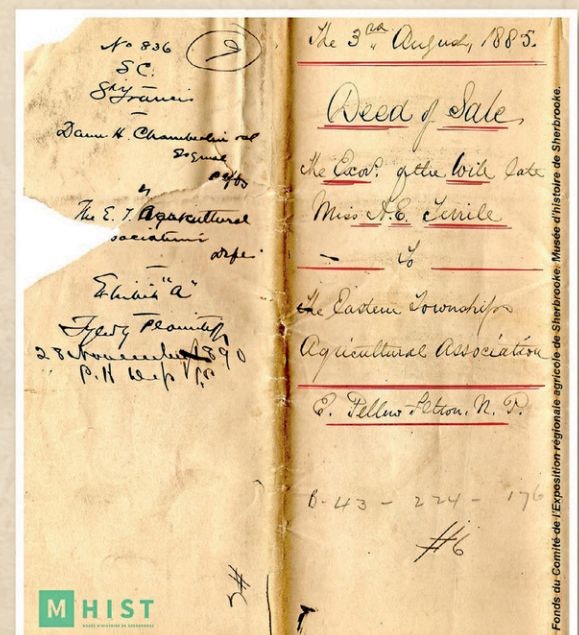 No 836
S.C.
St Francis
Dame H. Chamberlin et al
Plffs
vs
The E. T. Agricultural
Dfts
Exhibit "A"
Fyled by Plaintiffs
28 November 1890
P.H Dep
9
The 3rd August, 1885.
Deed of Sale
The Exors. of the Will late
Miss A.E. Terrill
To
The Eastern Townships
Agricultural Association
E. Pellew Felton, N. P.
B-43 - 224 - 176
#6
#
M HIST
MUSÉE D'HISTOIRE DE SHERBROOKE
Fonds du Comité de l'Exposition régionale agricole de Sherbrooke. Musée d'histoire de Sherbrooke.